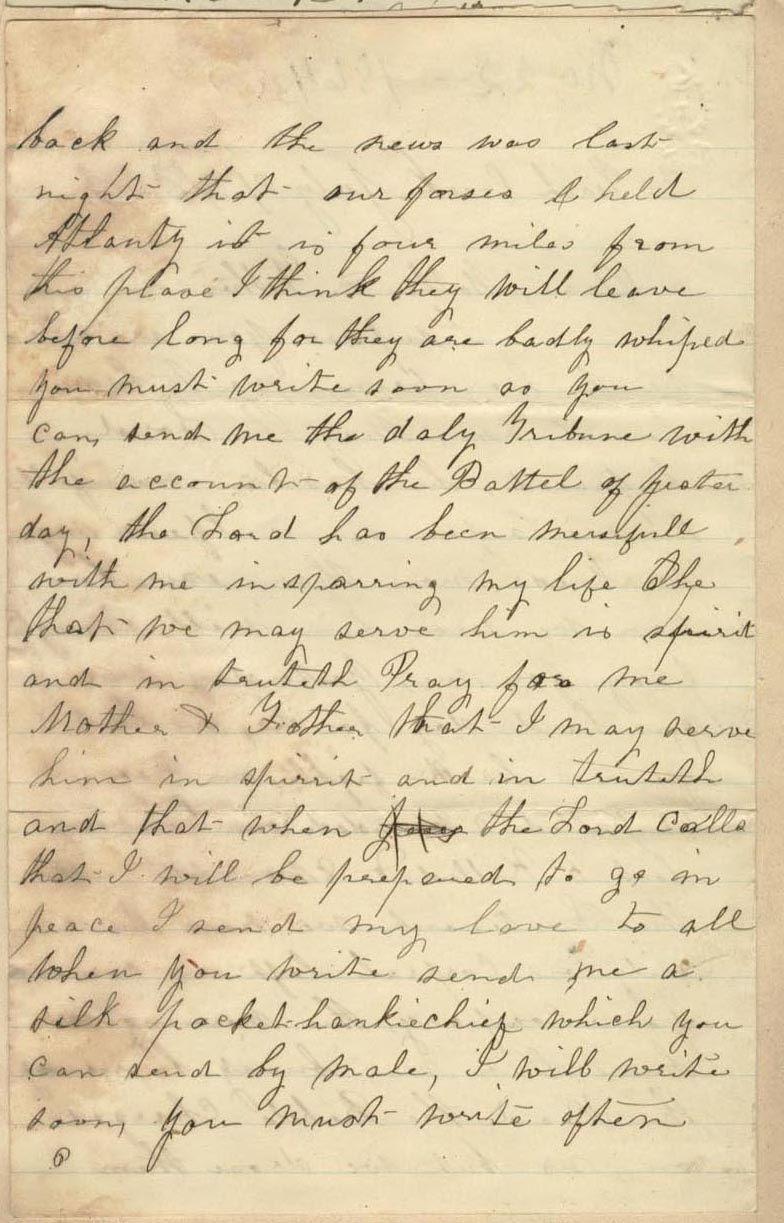 back and the news was last
night that our forses & held
Atlanty it is four miles from
this place I think they will leave
before long for they are badly whiped
you must write soon as you
can, send me the daly Tribune with
the account of the Battel of yester
day, the Lord has been mersifull
with me in sparring my life
that we may serve him is spirit
and in truteth Pray for me
Mother & Father that I may serve
him in spirrit and in truteth
and that when the Lord calls
that I will be prepared to go in
peace I send my love to all
when you write send me a
silk pocket-hankiechief which you
can send by male, I will write
soon, you must write often